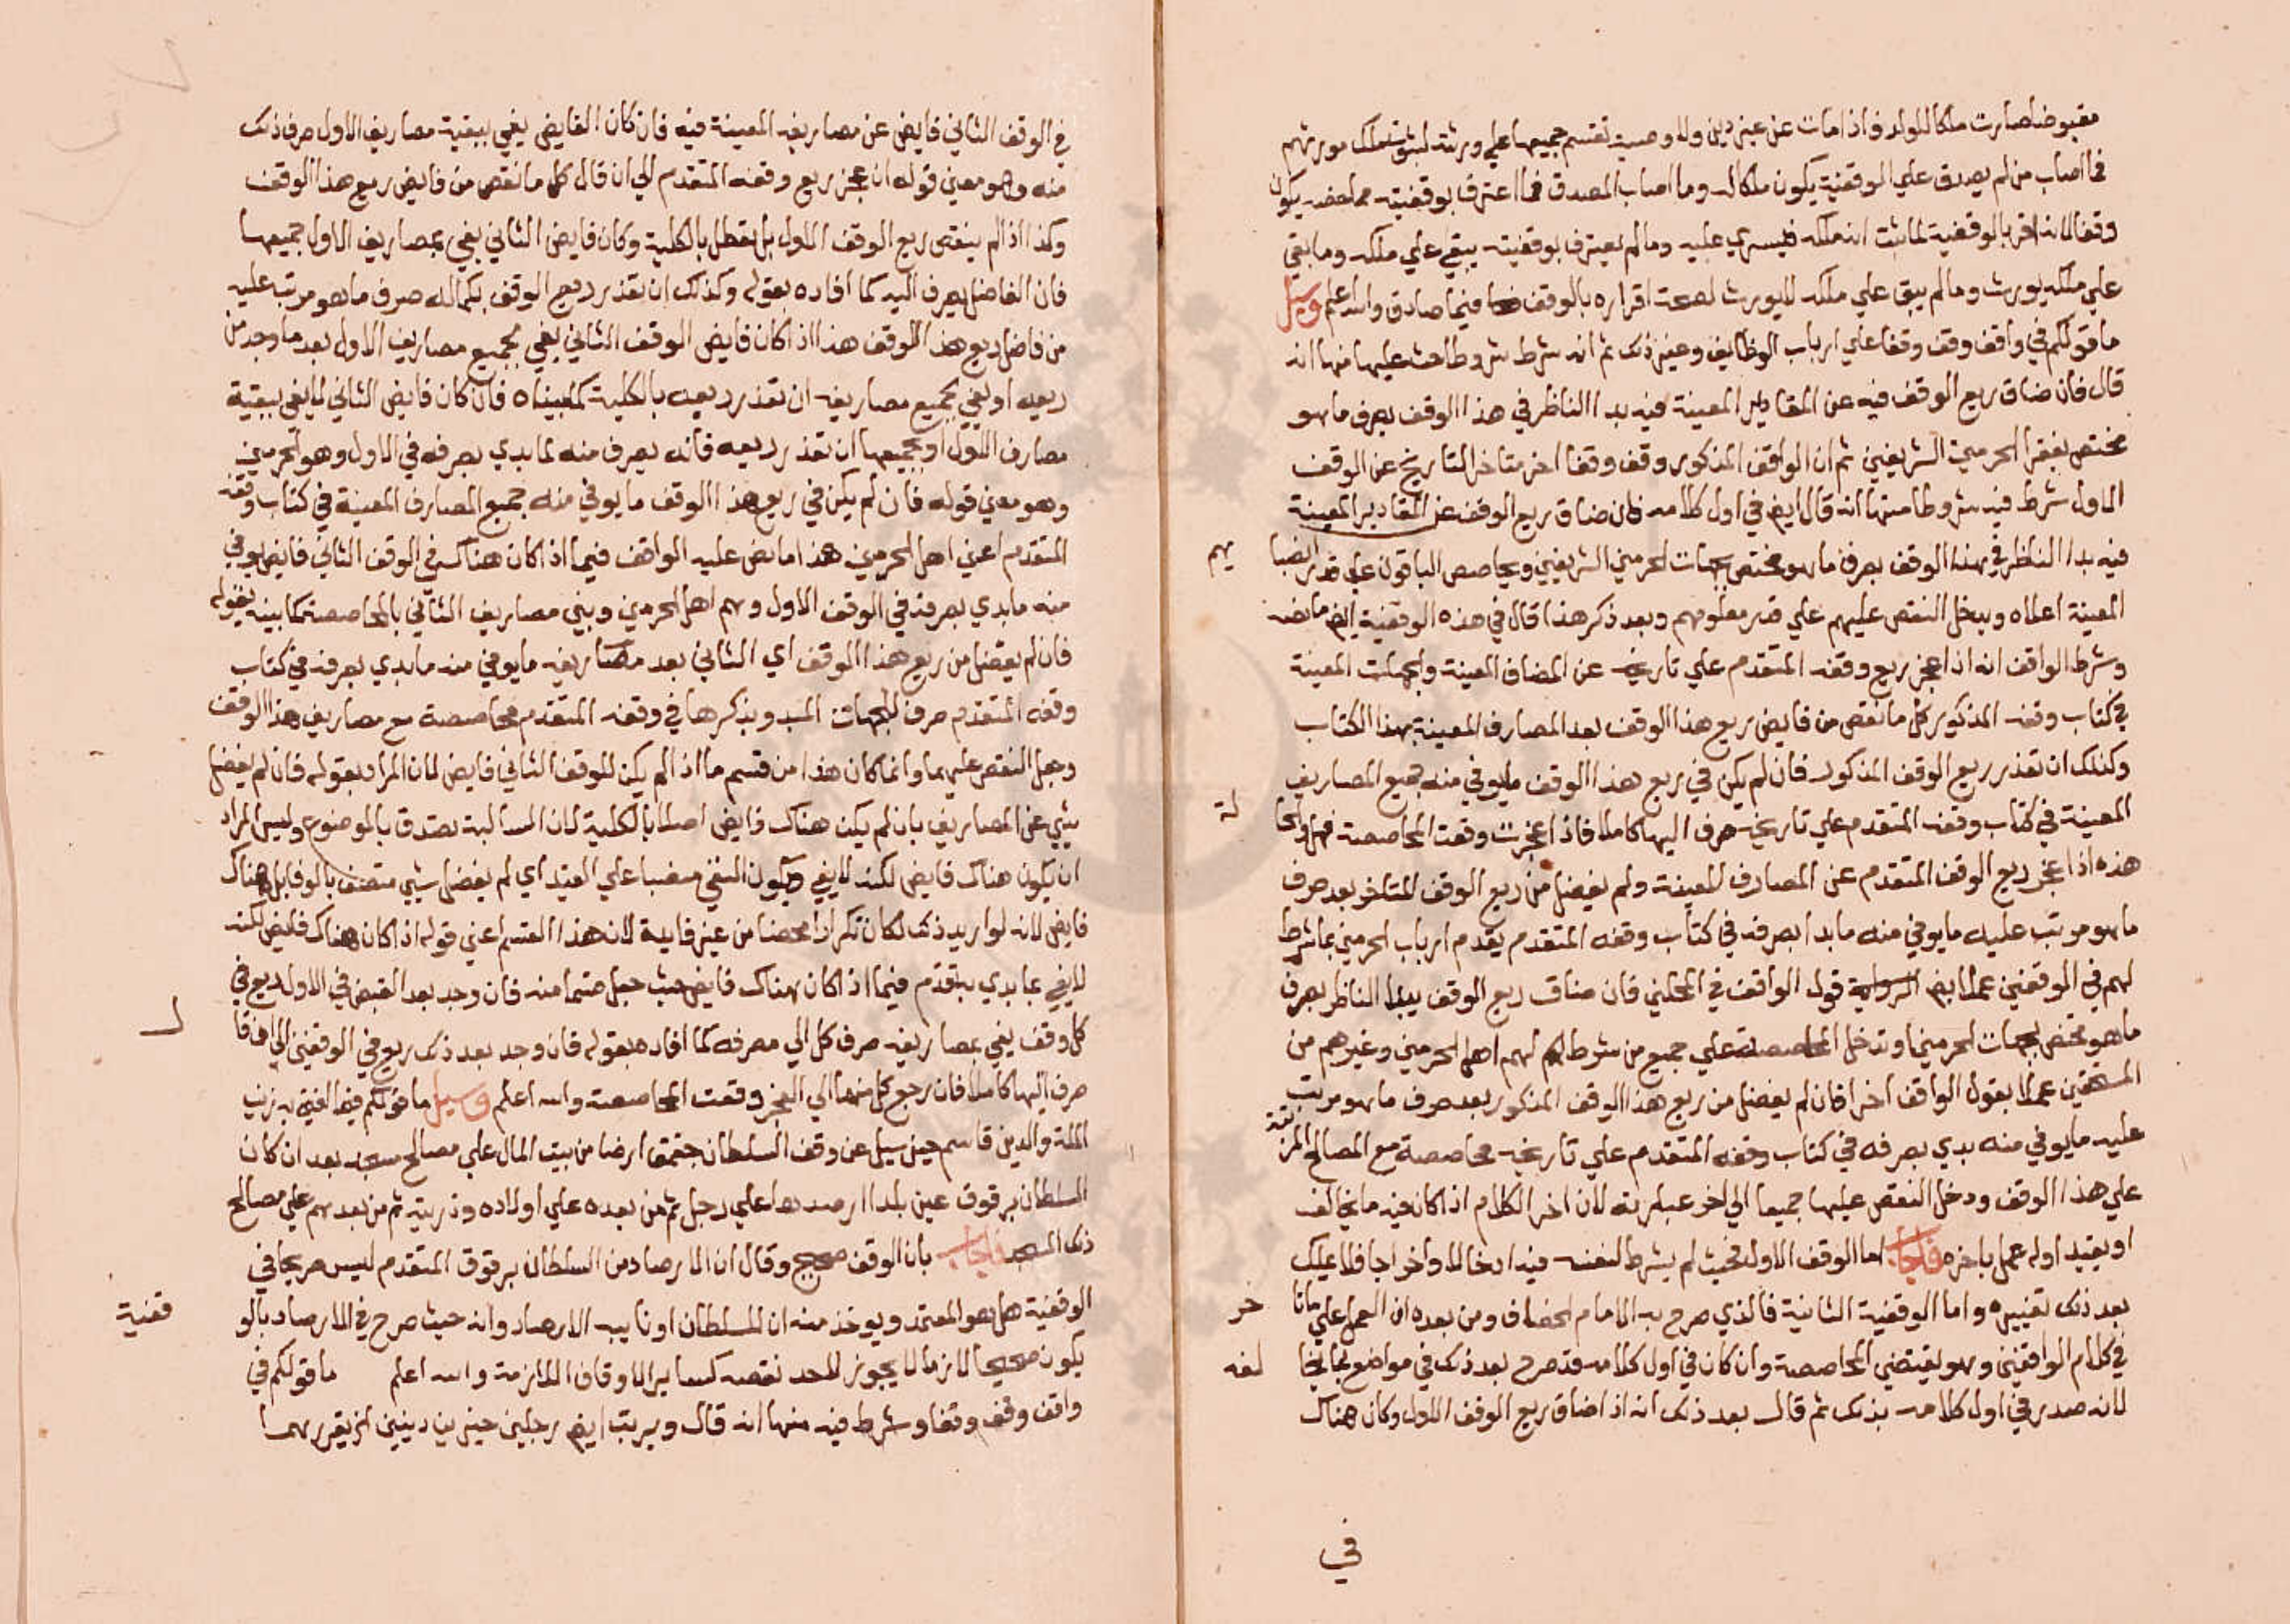 مقبوضا صارت ملكا للولد فاذا مات عن غير دين ولا وصية تقسم جميعها علي ورثته لثبوت ملك مورثهم
فما اصاب من لم يصدق علي الوقفية يكون ملكا له وما اصاب المصدق فما اعترف بوقفيته مما خصه يكون
وقفا لانه اقر بالوقفية لما ثبت انه ملكه فيسري عليه وما لم يعترف بوقفيته يبقي علي ملكه وما بقي
علي ملكه يورث وما لم يبق علي ملكه لا يورث لصحة اقراره بالوقف فيما صادق والله اعلم وسيل
ما قولكم في واقف وقف وقفا علي ارباب الوظايف وغير ذلك ثم انه شرط شروطا حث عليها منها انه
قال فان ضاق ريع الوقف فيه عن المقادير المعينة فيه بدا الناظر في هذا الوقف بصرف ما هو
مختص بفقرا الحرمين الشريفين ثم ان الواقف المذكور وقف وقفا اخر متاخر التاريخ عن الوقف
الاول شرط فيه شروطا منها انه قال ايض في اول كلامه فان ضاق ريع الوقف عن المقادير المعينة
فيه بدا الناظر في هذا الوقف بصرف ما هو مختص بجهات الحرمين الشريفين ويحاصص الباقون علي قدر انصبا
يهم
المعينة اعلاه ويدخل النقص عليهم علي قدر معلومهم وبعد ذكر هذا قال في هذه الوقفية ايض ما نصه
وشرط الواقف انه اذا عجز ريع وقفه المتقدم علي تاريخه عن المصارف المعينة والجهات المعينة
في كتاب وقفه المذكور كمل ما نقص من فايض ريع هذا الوقف بعد المصارف المعينة بهذا الكتاب
وكذلك ان تعذر ريع الوقف المذكور فان لم يكن في ريع هذا الوقف ما يوفي منه جميع المصاريف
المعينة في كتاب وقفه المتقدم علي تاريخه صرف اليها كاملا فاذا عجزت وقعت المحاصصة فهل والحا
لة
هذه اذا عجز ريع الوقف المتقدم عن المصارف المعينة ولم يفضل من ريع الوقف المتاخر بعد صرف
ما هو مرتب عليه ما يوفي منه ما بدا بصرفه في كتاب وقفه المتقدم يقدم ارباب الحرمين بما شرط
لهم في الوقفين عملا بقول الواقف في المحلين فان ضاق ريع الوقف يبدا الناظر بصرف
ما هو مختص بجهات الحرمين او تدخل المحاصصة علي جميع من شرط لهم اهل الحرمين وغيرهم من
المستحقين عملا بقول الواقف اخرا فان لم يفضل من ريع هذا الوقف المذكور بعد صرف ما هو مرتب
عليه ما يوفي منه بدي بصرفه في كتاب وقفه المتقدم علي تاريخه محاصصة مع المصالح المرتبة
علي هذا الوقف ودخل النقص عليها جميعا الي اخر عبارته لان اخر الكلام اذا كان فيه ما يخالف
او يقيد اوله عمل باخره فاجاب اما الوقف الاول فحيث لم يشرط لنفسه فيه ادخالا واخراجا فلا يملك
بعد ذلك تغييره واما الوقفية الثانية فالذي صرح به الامام الخصاف ومن بعده ان العمل علي ما تا
خر
في كلام الواقفين وهو يقتضي المحاصصة وان كان في اول كلامه قد صرح بعد ذلك في مواضع بما يخا
لفه
لانه صدر في اول كلامه بذلك ثم قال بعد ذلك انه اذا ضاق ريع الوقف الاول وكان هناك
في
في الوقف الثاني فايض عن مصاريفه المعينة فيه فان كان الفايض يفي ببقية مصاريف الاول صرف ذلك
منه وهو معني قوله ان عجز ريع وقفه المتقدم الي ان قال كمل ما نقص من فايض ريع هذا الوقف
وكذا اذا لم ينقص ريع الوقف الاول بل تعطل بالكلية وكان فايض الثاني يفي بمصاريف الاول جميعها
فان الفاضل يصرف اليه كما افاده بقوله وكذلك ان تعذر ريع الوقف بكماله صرف ما هو مرتب عليه
من فاضل ريع هذا الوقف هذا اذا كان فايض الوقف الثاني يفي بجميع مصاريف الاول بعد ما وجد من
ريعه او يفي بجميع مصاريفه ان تعذر ريعه بالكلية كما بيناه فان كان فايض الثاني لا يفي ببقية
مصارف الاول او بجميعها ان تعذر ريعه فانه يصرف منه لما بدي بصرفه في الاول وهو الحرمين
وهو معني قوله فان لم يكن في ريع هذا الوقف ما يوفي منه جميع المصارف المعينة في كتاب وقفه
المتقدم اعني اهل الحرمين هذا ما نص عليه الواقف فيما اذا كان هناك في الوقف الثاني فايض يوفي
منه ما بدي بصرفه في الوقف الاول وهم اهل الحرمين وبين مصاريف الثاني بالمحاصصة كما بينه بقوله
فان لم يفضل من ريع هذا الوقف اي الثاني بعد مصاريفه ما يوفي منه ما بدي بصرفه في كتاب
وقفه المتقدم صرف للجهات المبدو بذكرها في وقفه المتقدم محاصصة مع مصاريف هذا الوقف
وجعل النقص عليهما وانما كان هذا من قسم ما اذا لم يكن للوقف الثاني فايض لان المراد بقوله فان لم يفضل
شي عن المصاريف بان لم يكن هناك فايض اصلا بالكلية لان السالبة تصدق بالموضوع وليس المراد
ان يكون هناك فايض لكنه لا يفي ويكون النفي منصبا علي القيد اي لم يفضل شي متصف بالوفا بل هناك
فايض لانه لو اريد ذلك لكان تكرارا محضا من غير فايدة لان هذا القسم اعني قوله اذا كان هناك فايض لكنه
لا يفي بما بدي به تقدم فيما اذا كان هناك فايض حيث جعل قسما منه فان وجد بعد القبض في الاول ريع في
كل وقف يفي بمصاريفه صرف كل الي مصرفه كما افاده بقوله فان وجد بعد ذلك ريع في الوقفين الي اخره
صرف اليها كاملا فان رجع كل منهما الي العجز وقعت المحاصصة والله اعلم وسيل ما قولكم فيما افتي به زين
الملة والدين قاسم حين سيل عن وقف السلطان جقمق ارضا من بيت المال علي مصالح مسجد بعد ان كان
السلطان برقوق عين بلدا ارصدها علي رجل ثم من بعده علي اولاده وذريته ثم من بعدهم علي مصالح
ذلك المسجد فاجاب بان الوقف صحيح وقال ان الارصاد من السلطان برقوق المتقدم ليس صريحا في
الوقفية هل هو المعتمد ويوخذ منه ان للسلطان او نايبه الارصاد وانه حيث صرح في الارصاد بالو
قفية
يكون صحيحا لازما لا يجوز لاحد نقضه كساير الاوقاف اللازمة والله اعلم ما قولكم في
واقف وقف وقفا وشرط فيه منها انه قال ويرتب ايض رجلين خيرين دينين يقررهما